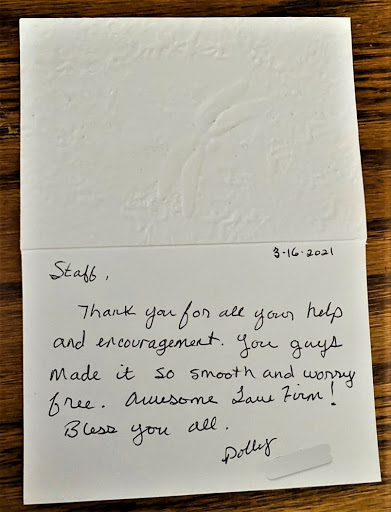 3-16-2021
Staff,
Thank you for all your help
and encouragement. You guys
made it so smooth and worry
free. Awesome Law Firm!
Bless you all.
Dolly